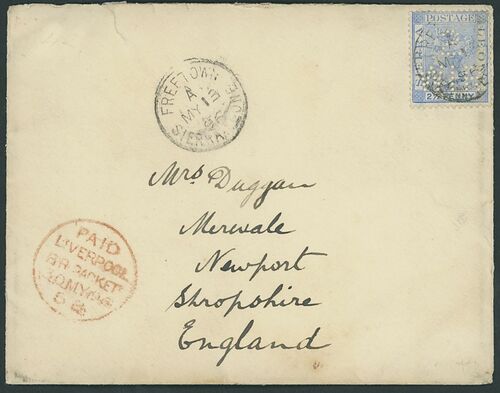 POSTAGE
SIERRA
LEONE
2½ PENNY
FREETOWN
A
MY 1
SIERRA LEONE
Mrs Duggan
Merevale
Newport
Shropshire
England
PAID
LIVERPOOL
BR. PACKET
20 MY 96